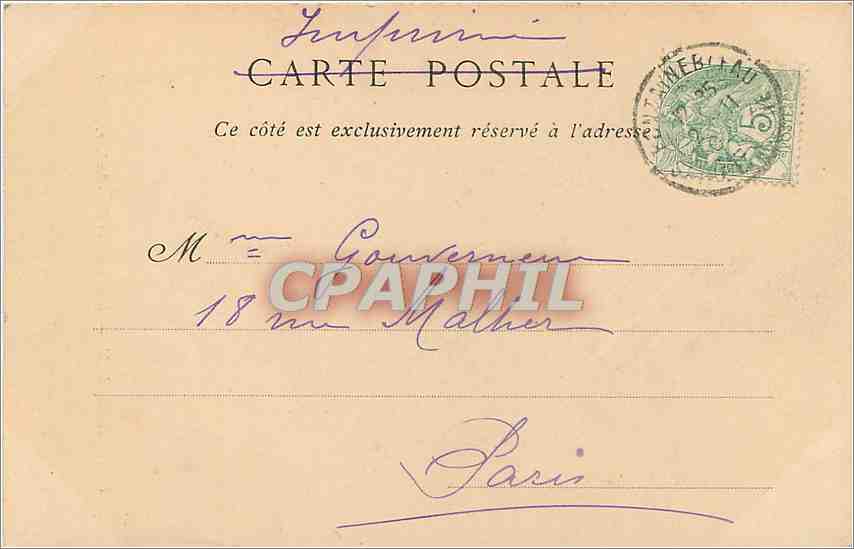 Imprimé
CARTE POSTALE
Ce côté est exclusivement réservé à l'adresse
FONTAINEBLEAU
5
POSTES
Mme Gouverneur
CPAPHIL
18 rue Malher
Paris